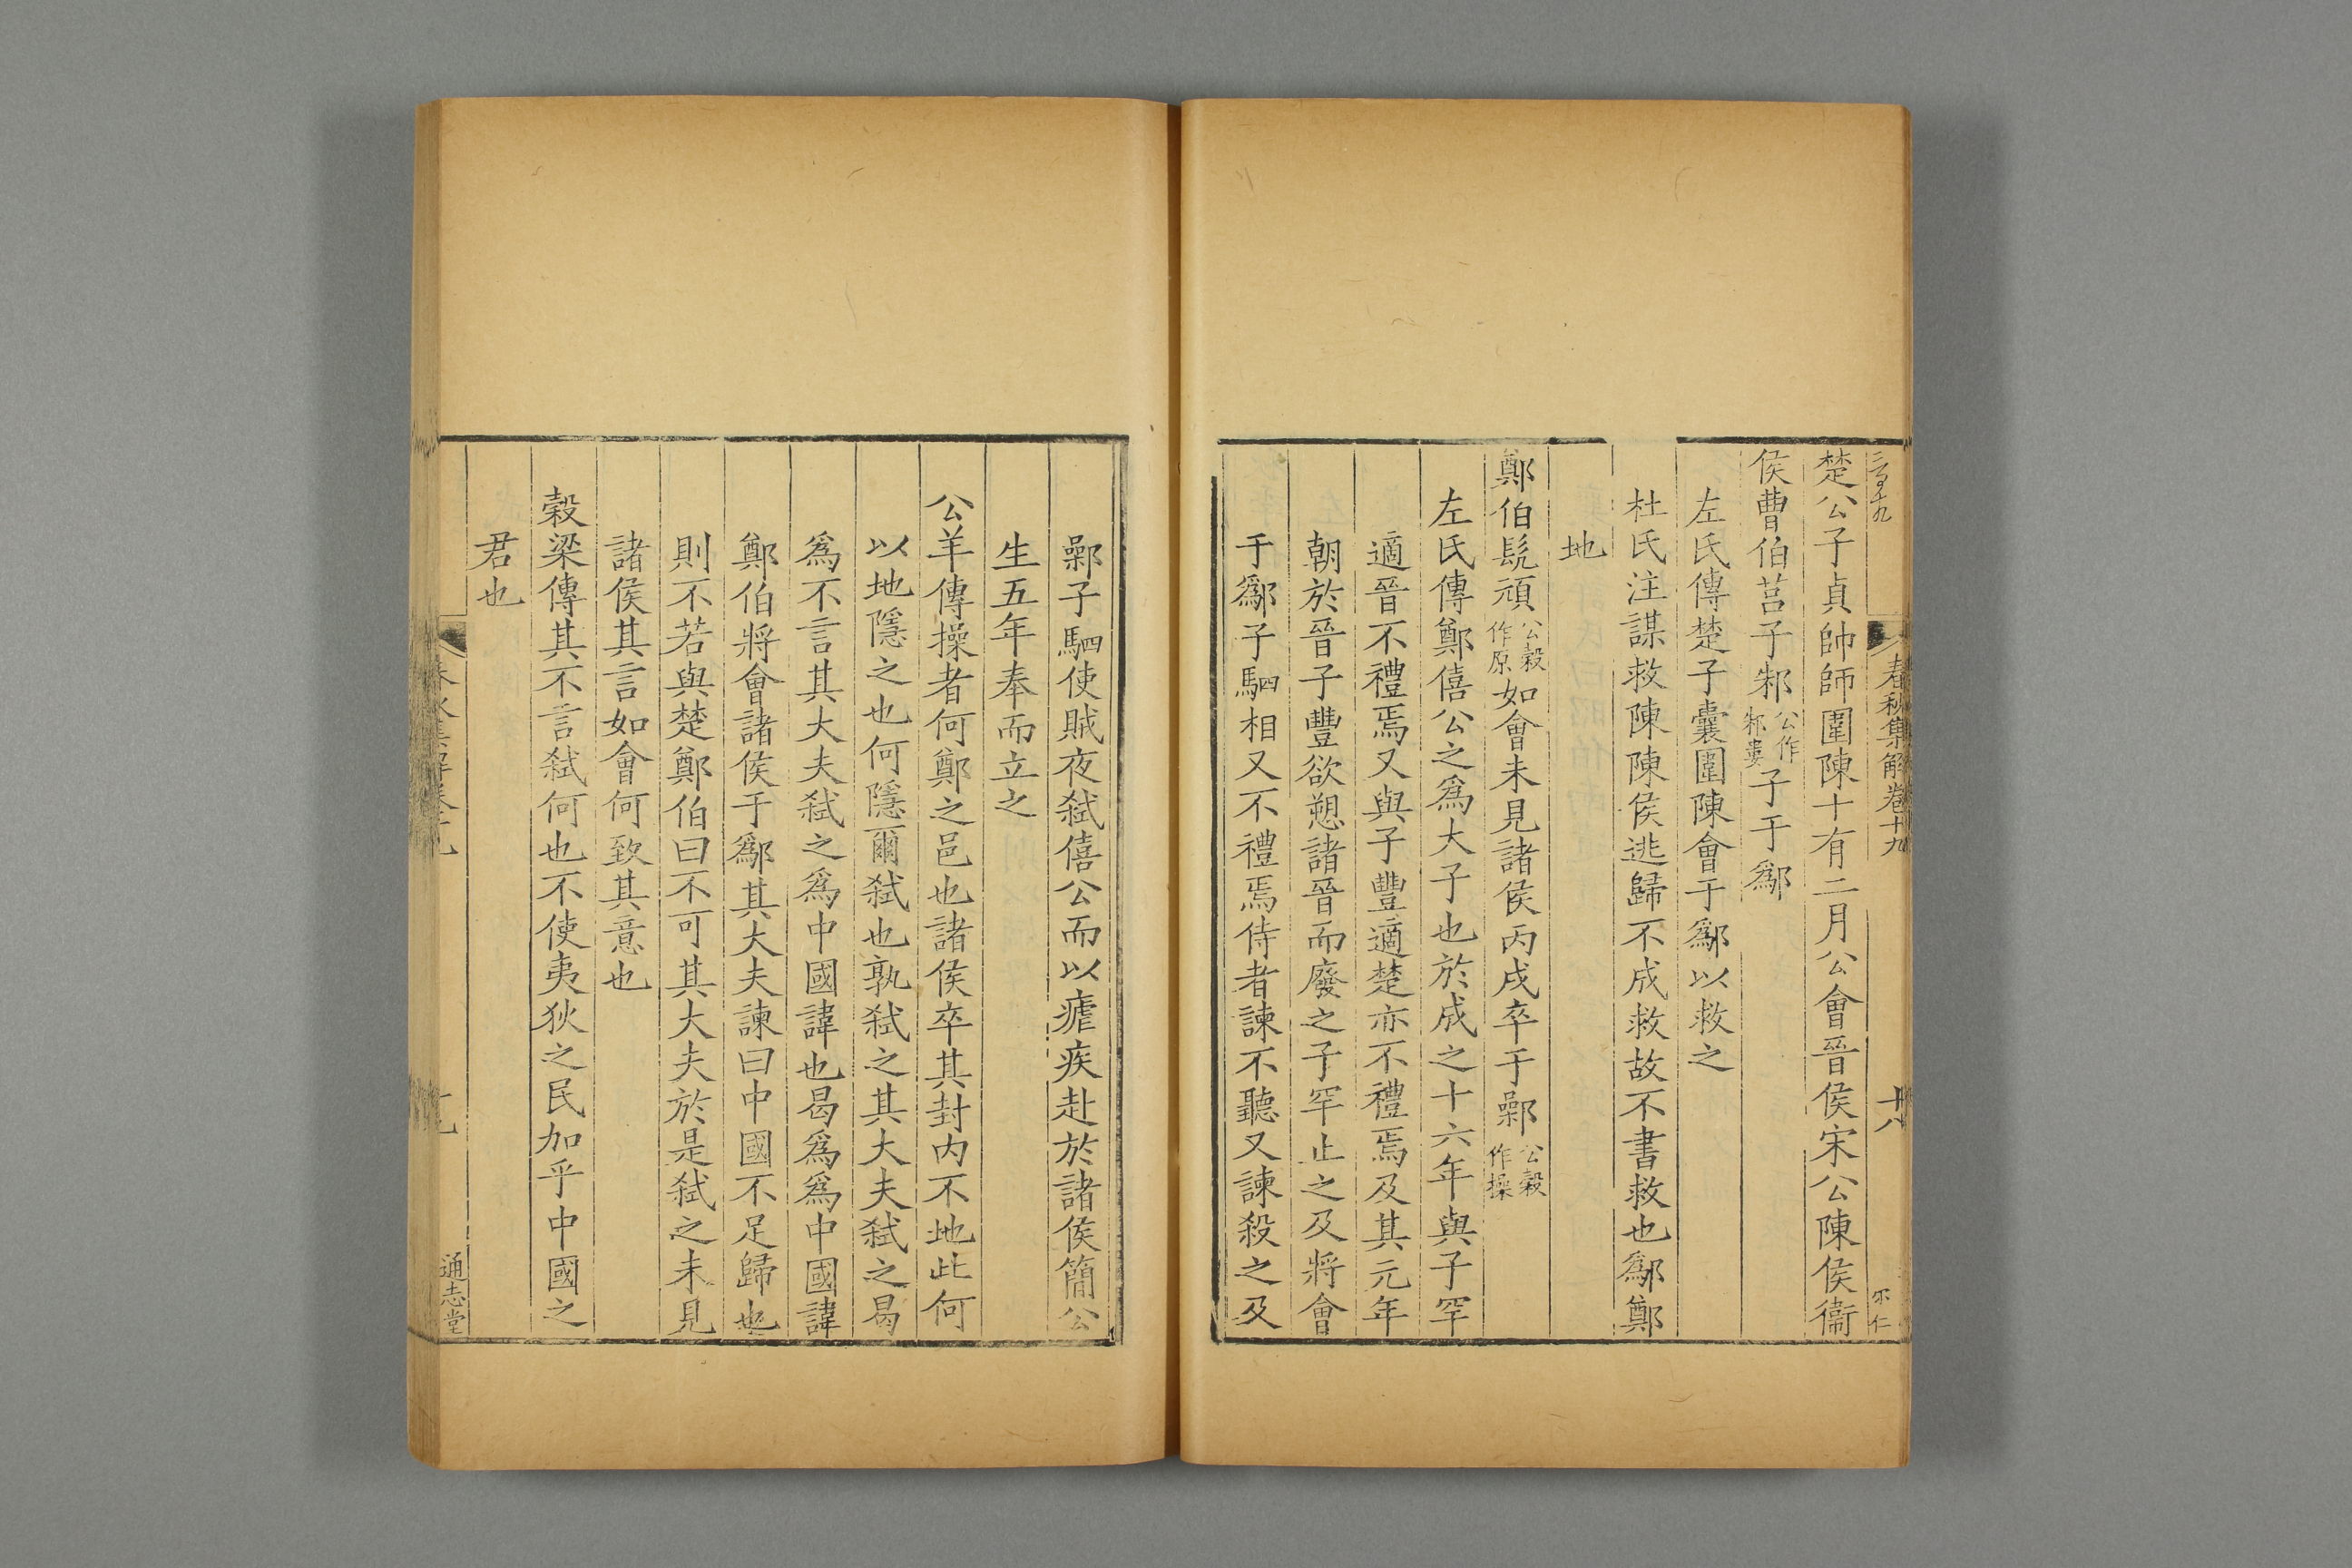 春秋集解卷十九
十八
楚公子貞帥師圍陳十有二月公會晉侯宋公陳侯衞
侯曹伯莒子邾公作邾婁子于鄬
左氏傳楚子囊圍陳會于鄬以救之
杜氏注謀救陳陳侯逃歸不成救故不書救也鄬鄭
地
鄭伯髡頑公穀作原如會未見諸侯丙戌卒于鄵公穀作操
左氏傳鄭僖公之爲大子也於成之十六年與子罕
適晉不禮焉又與子豐適楚亦不禮焉及其元年
朝於晉子豐欲愬諸晉而廢之子罕止之及將會
于鄬子駟相又不禮焉侍者諫不聽又諫殺之及
鄵子駟使賊夜弑僖公而以瘧疾赴於諸侯簡公
生五年奉而立之
公羊傳操者何鄭之邑也諸侯卒其封内不地此何
以地隱之也何隱爾弑也孰弑之其大夫弑之曷
爲不言其大夫弑之爲中國諱也曷爲爲中國諱
鄭伯將會諸侯于鄬其大夫諫曰中國不足歸也
則不若與楚鄭伯曰不可其大夫於是弑之未見
諸侯其言如會何致其意也
穀梁傳其不言弑何也不使夷狄之民加乎中國之
君也
通志堂